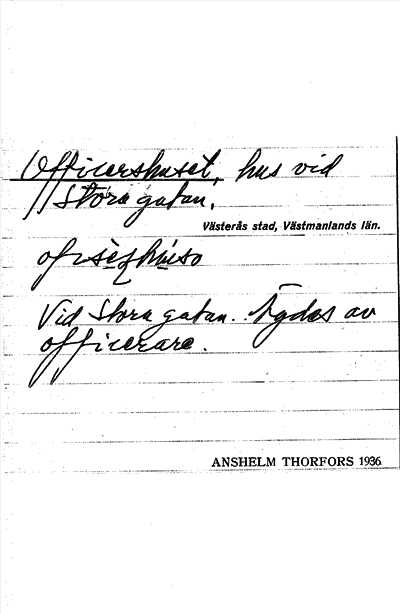 Officershuset, hus vid
Stora gatan.
Västerås stad, Västmanlands län.
Vid Stora gatan. Ägdes av
officerare.
ANSHELM THORFORS 1936